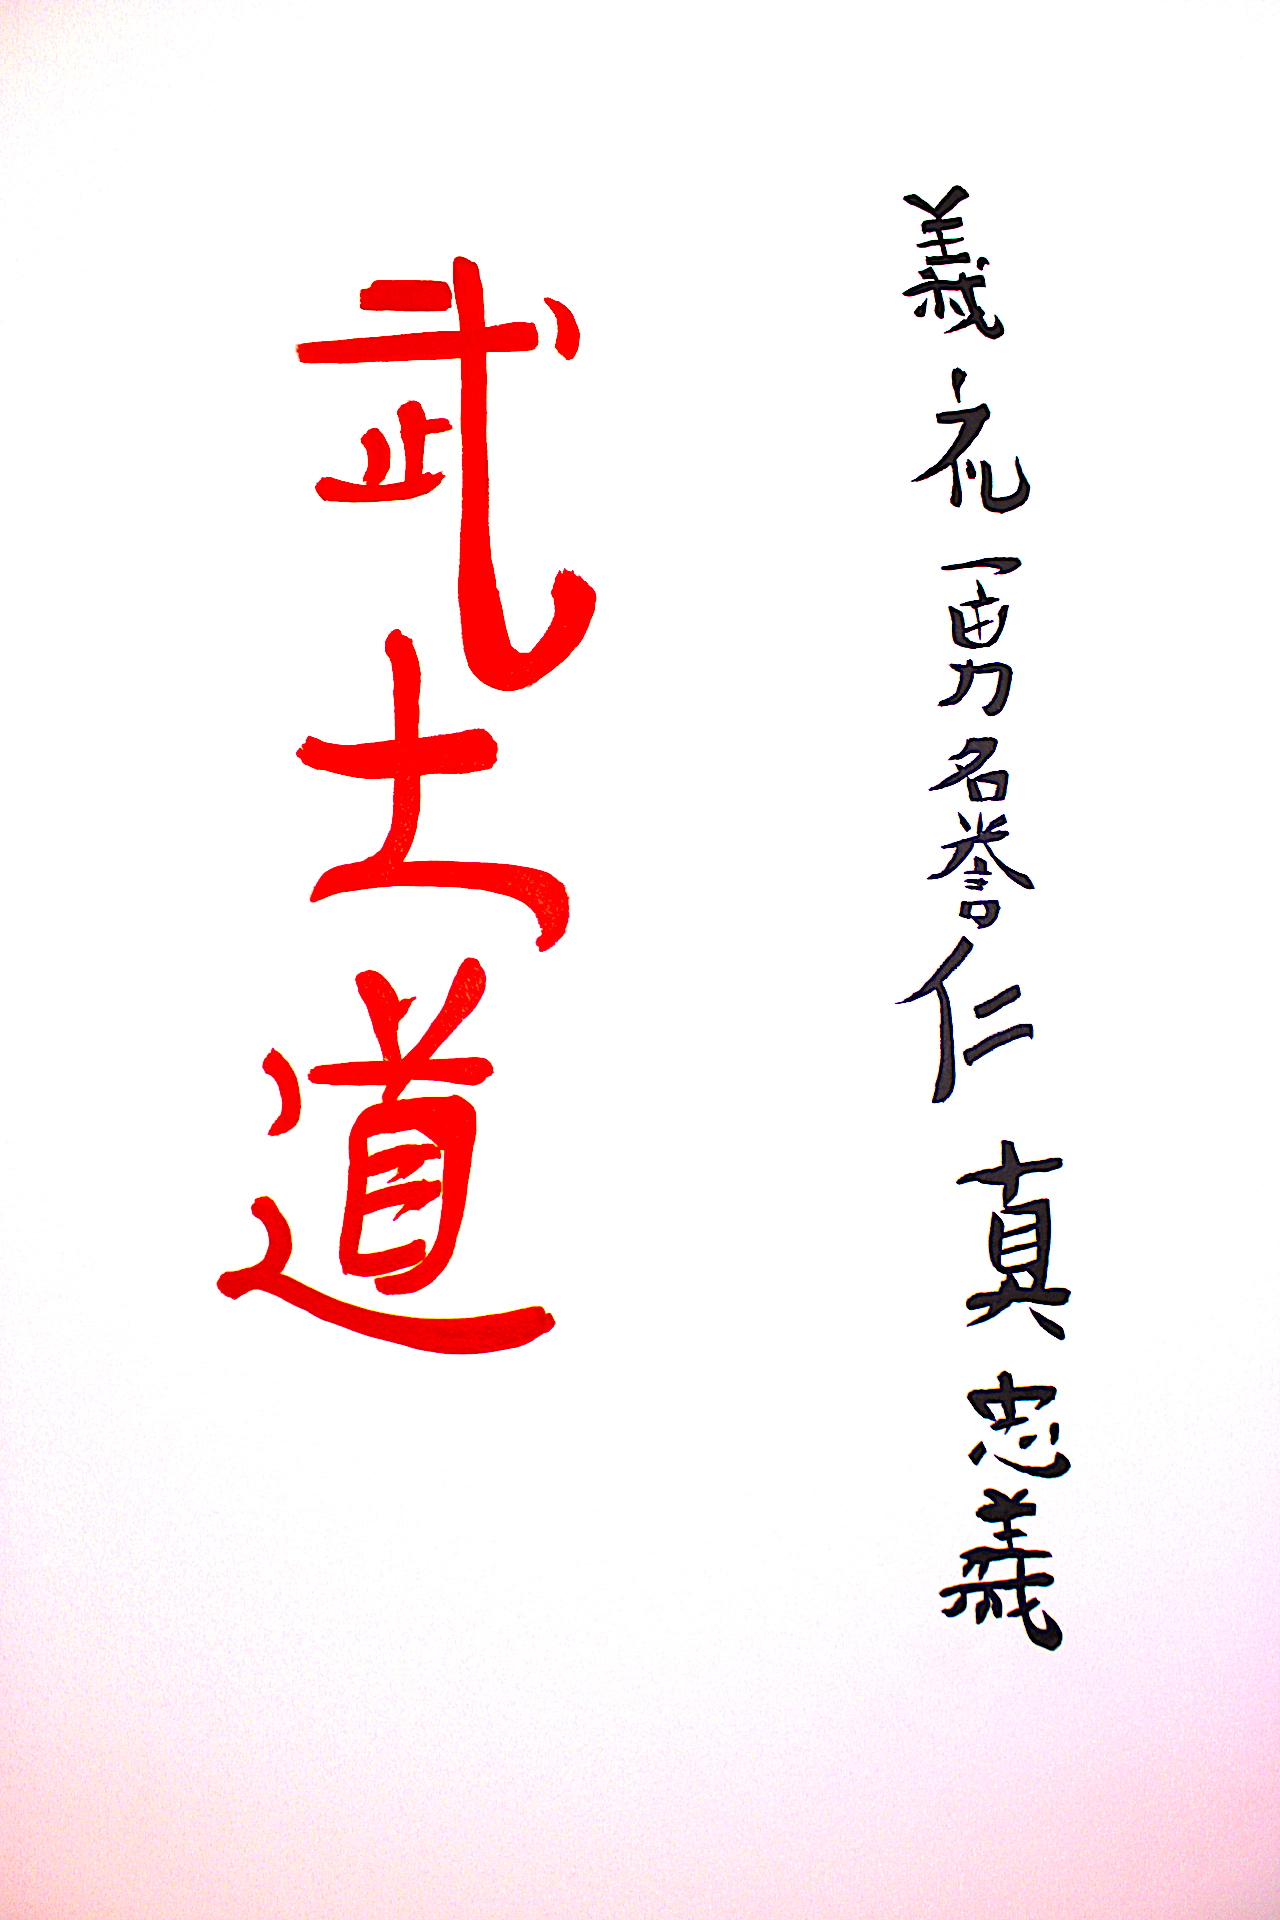 義礼勇名誉仁真忠義
武士道